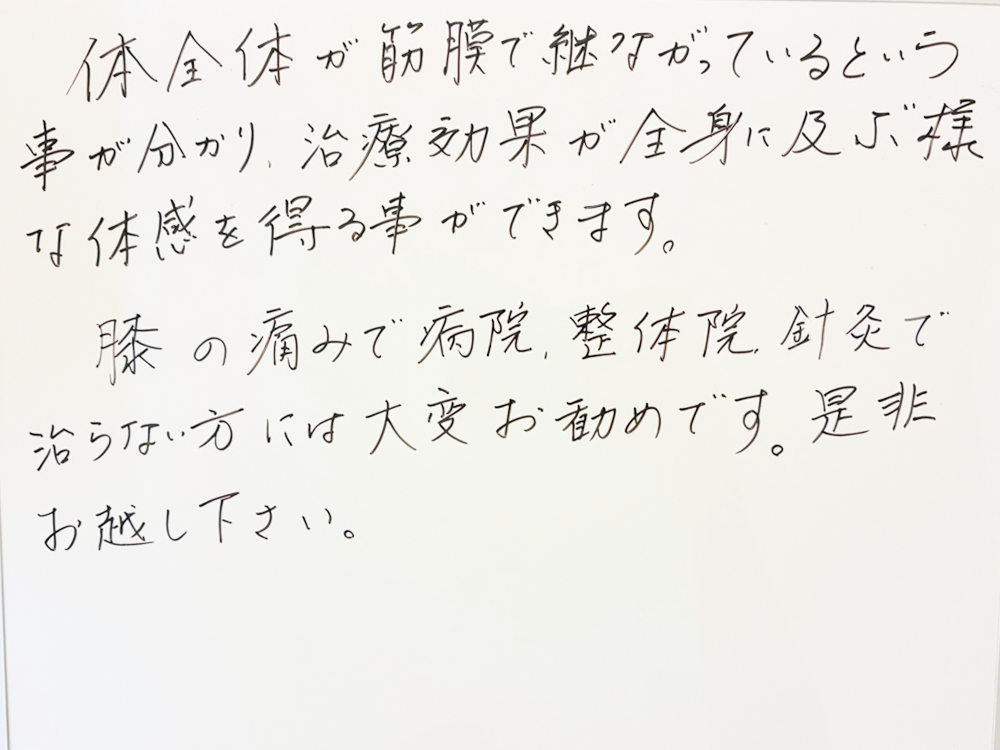 体全体が筋膜で継ながっているという
事が分かり、治療効果が全身に及ぶ様
な体感を得る事ができます。
膝の痛みで病院、整体院、針灸で
治らない方には大変お勧めです。是非
お越し下さい。